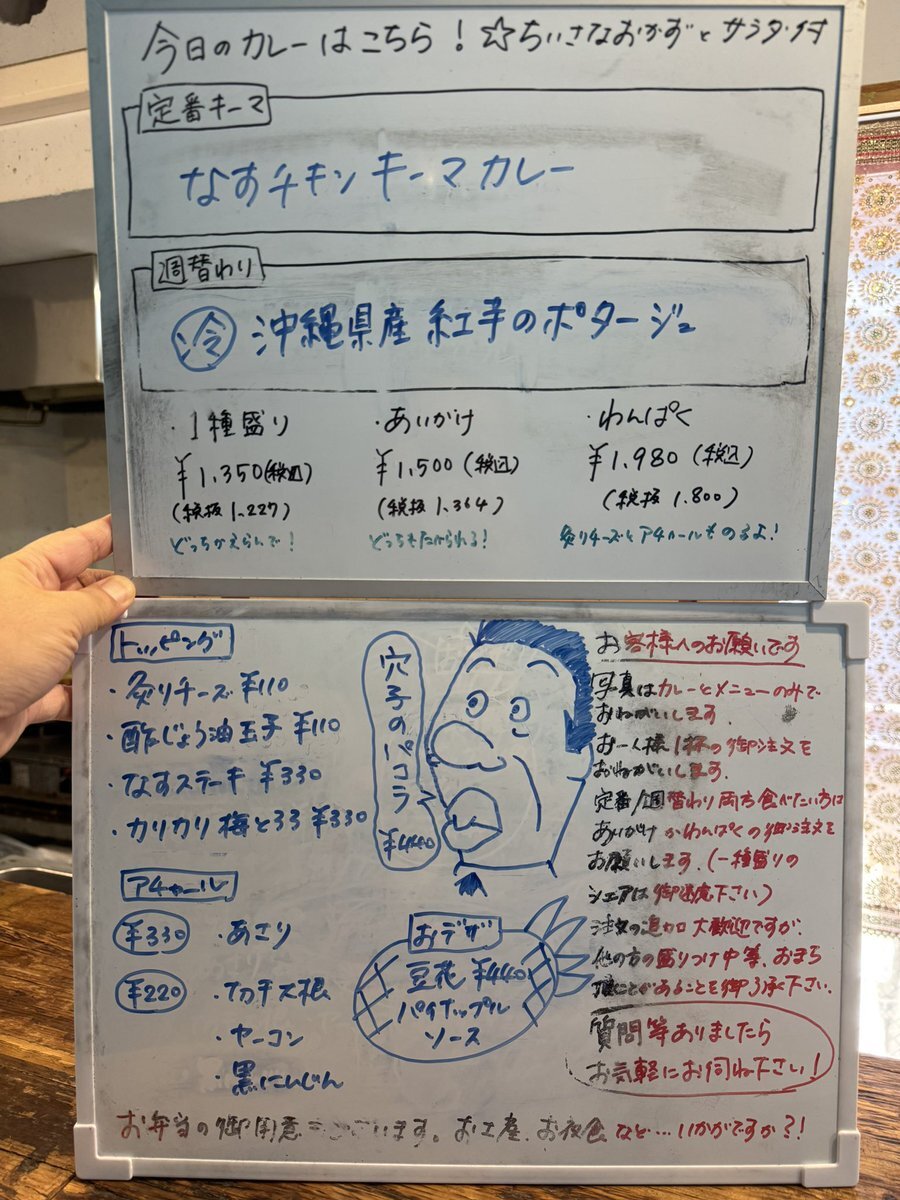 今日のカレーはこちら！☆ちいさなおかずとサラダ付
定番キーマ
なすチキンキーマカレー
週替わり
冷 沖縄県産 紅芋のポタージュ
・1種盛り
¥1,350(税込)
(税抜1,227)
どっちかえらんで！
・あいがけ
¥1,500(税込)
(税抜1,364)
どっちもたべられる！
・わんぱく
¥1,980(税込)
(税抜1,800)
炙りチーズとアチャールものるよ！
トッピング
・炙りチーズ¥110
・酢じょう油玉子¥110
・なすステーキ¥330
・カリカリ梅とろろ¥330
アチャール
¥330 ・あさり
¥220 ・切干大根
・ヤーコン
・黒にんじん
穴子のパコラ
¥440
おデザ
豆花¥440
パイナップル
ソース
お客様へのお願いです
写真はカレーとメニューのみで
おねがいします.
お一人様1杯の御注文を
おねがいします.
定番/週替わり両方食べたい方は
あいがけかわんぱくの御注文を
お願いします.(一種盛りの
シェアは御遠慮下さい)
注文の追加大歓迎ですが.
他の方の盛りつけ中等、おまち
頂くことがあることを御了承下さい.
質問等ありましたら
お気軽にお伺ね下さい！
お弁当の御用意ございます。お土産、お夜食など…いかがですか?!